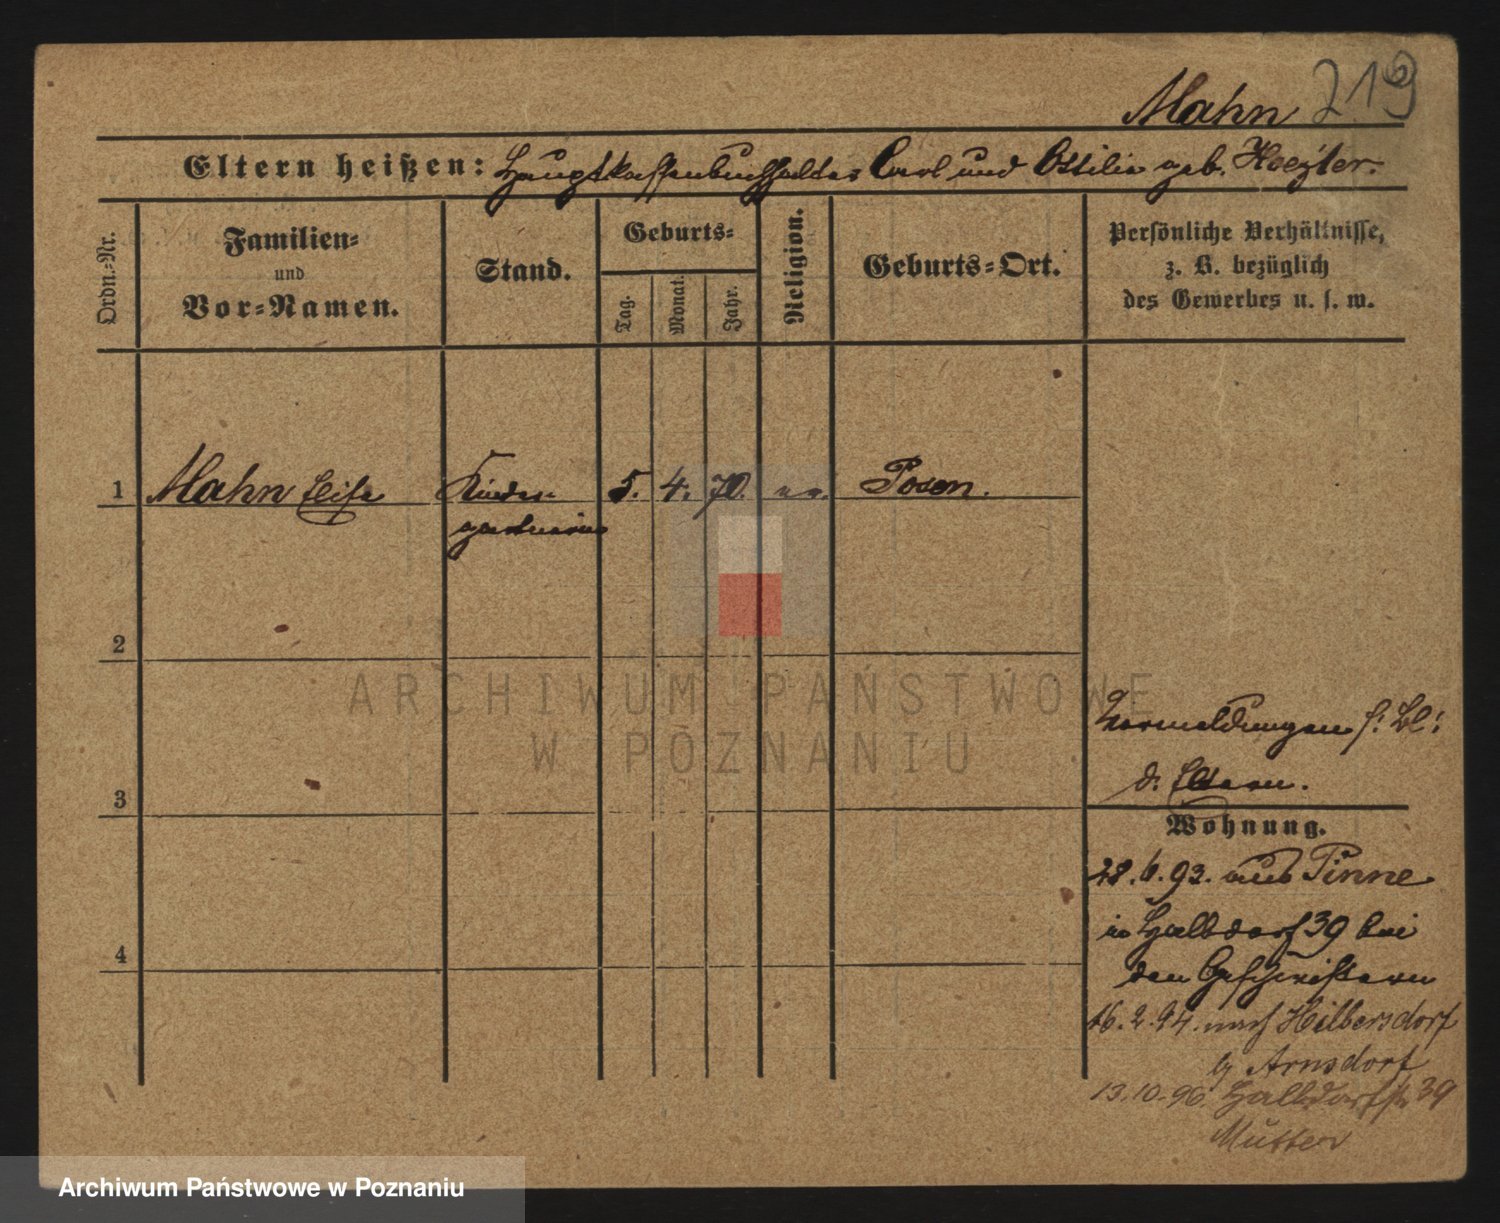 Mahn 219
Eltern heißen: Hauptkassenbuchhalter Carl und Ottilie geb.
Ordn.-Nr.
Familien-
und
Vor-Namen.
Stand.
Geburts-
Tag.
Monat.
Jahr.
Religion.
Geburts-Ort.
Persönliche Verhältnisse,
z. B. bezüglich
des Gewerbes u. s. w.
1 Mahn Elise Kinder- 5. 4. 70. ev. Posen.
gärtnerin
2
3
4
Vormeldungen s. Bl:
d. Eltern.
Wohnung.
28.6.93. aus Pinne
in Halbdorf 39 bei
den Geschwistern
16.2.94. nach Hilbersdorf
b/ Arnsdorf
13.10.96. Halbdorfstr 39
Mutter
ARCHIWUM PAŃSTWOWE
W POZNANIU
Archiwum Państwowe w Poznaniu